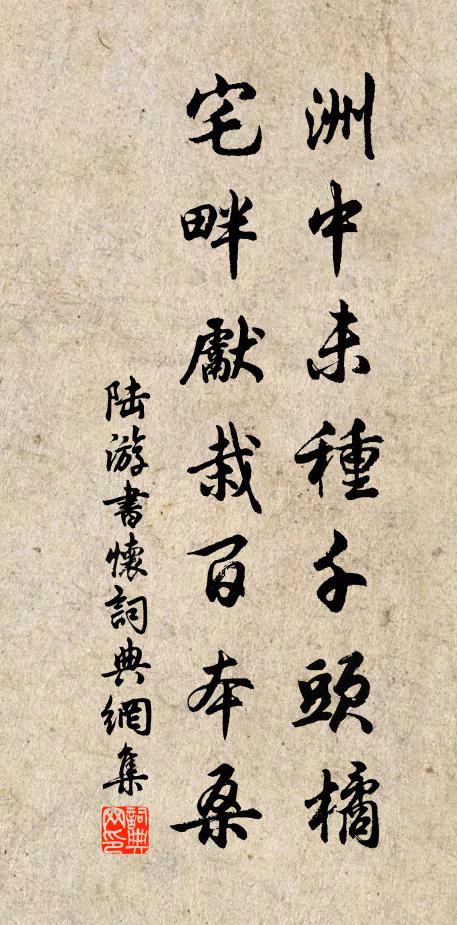 洲中未種千頭橘
宅畔獻栽百本桑
陆游書懷詞典網集
詞典網印